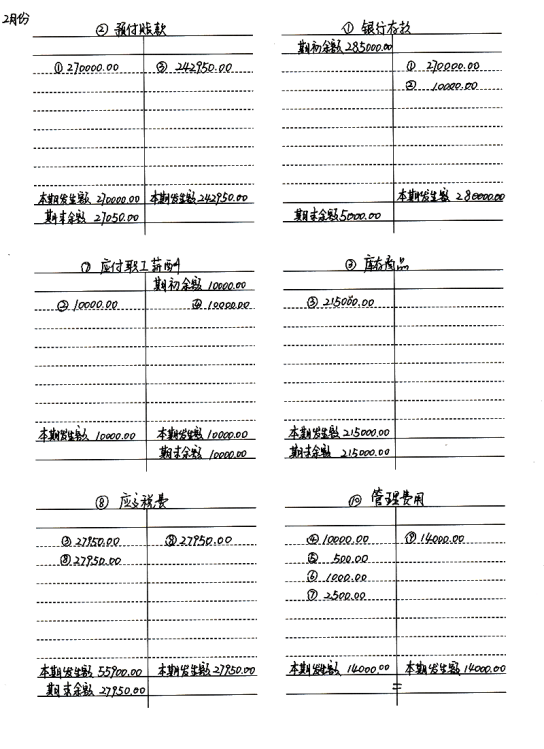 2月份
② 预付账款
① 270000.00 ③ 242950.00
本期发生额 270000.00 本期发生额 242950.00
期末余额 27050.00
① 银行存款
期初余额 285000.00
① 270000.00
② 10000.00
本期发生额 280000.00
期末余额 5000.00
⑦ 应付职工薪酬
期初余额 10000.00
② 10000.00 ④ 10000.00
本期发生额 10000.00 本期发生额 10000.00
期末余额 10000.00
③ 库存商品
③ 215000.00
本期发生额 215000.00
期末余额 215000.00
⑧ 应交税费
③ 27950.00 ⑧ 27950.00
⑧ 27950.00
本期发生额 55900.00 本期发生额 27950.00
期末余额 27950.00
⑩ 管理费用
④ 10000.00 ⑨ 14000.00
⑤ 500.00
⑥ 1000.00
⑦ 2500.00
本期发生额 14000.00 本期发生额 14000.00